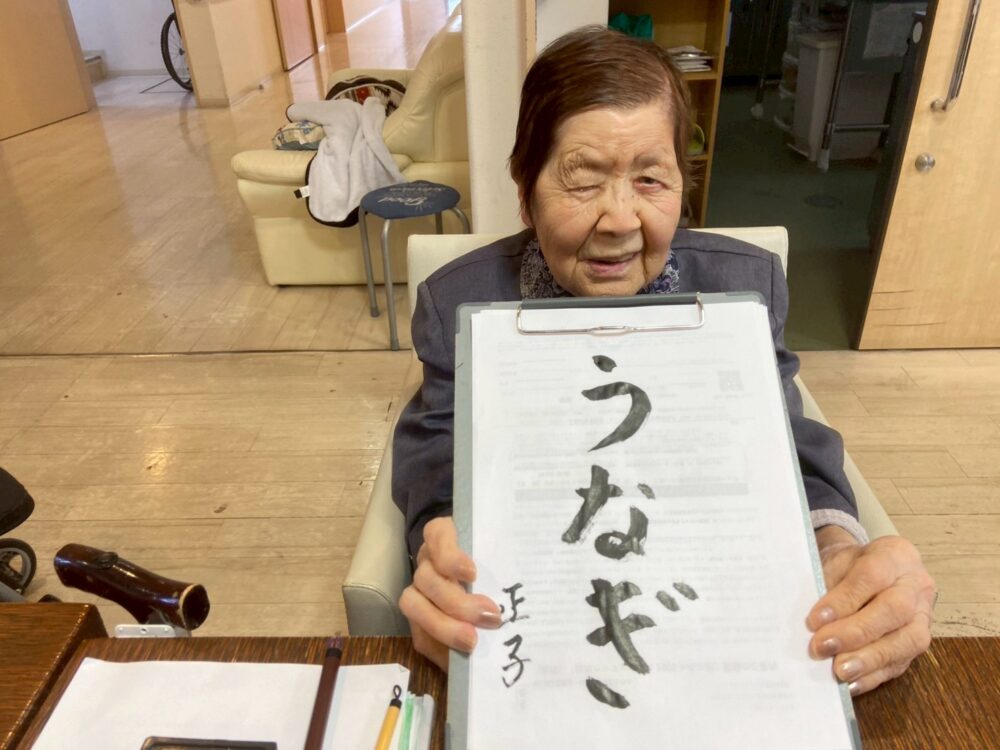 うなぎ
正子
good